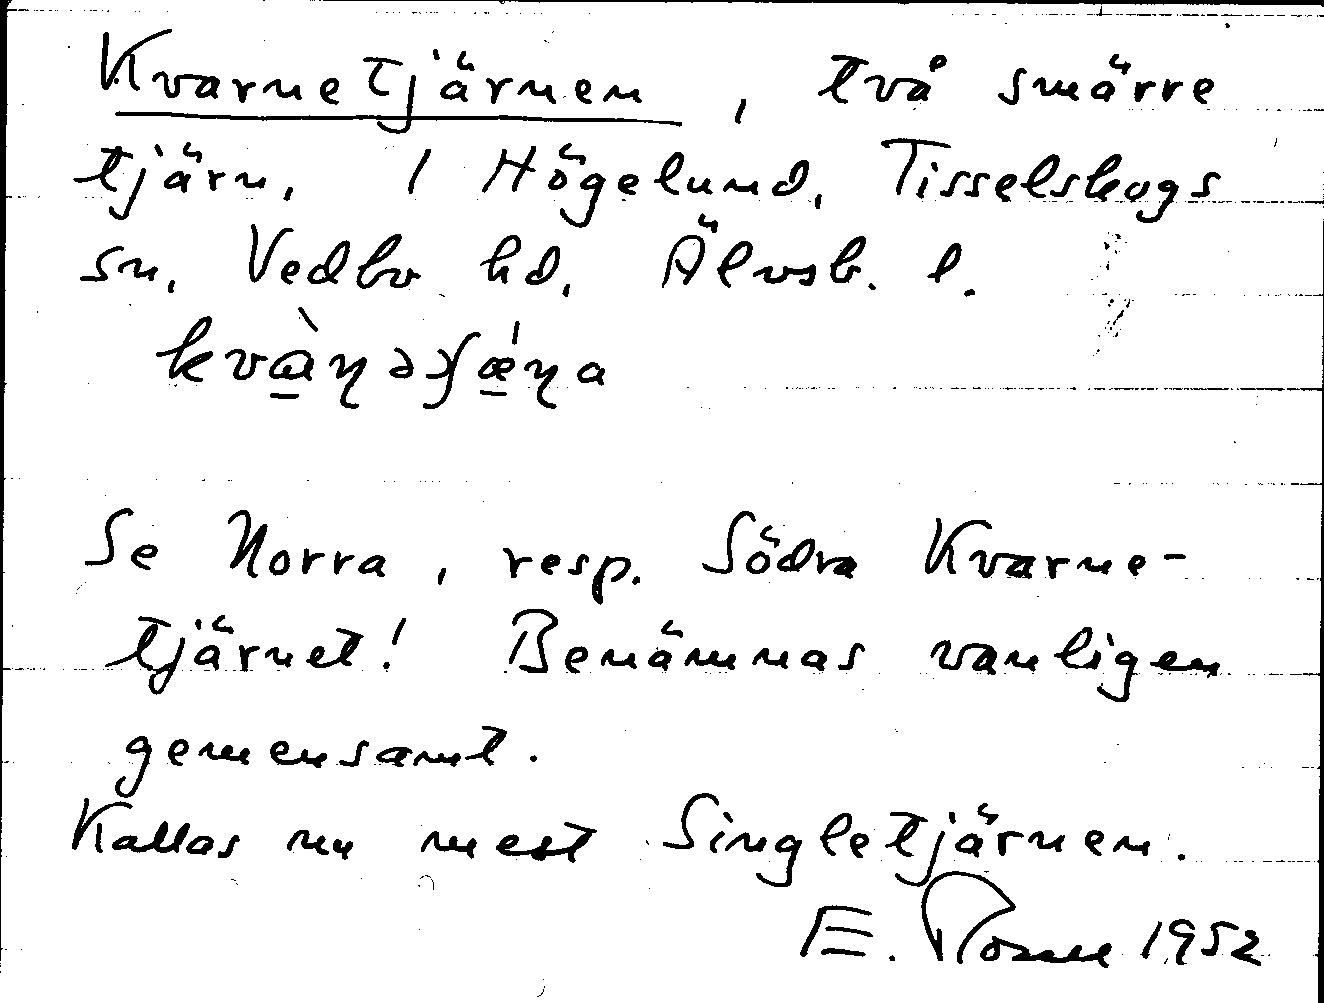 Kvarnetjärnen, två smärre
tjärn, i Högelund, Tisselskogs
sn, Vedbo hd, Älvsb. l.
Se Norra, resp. Södra Kvarne-
tjärnet! Benämnas vanligen
gemensamt.
Kallas nu mest Singletjärnen.
E. 1952